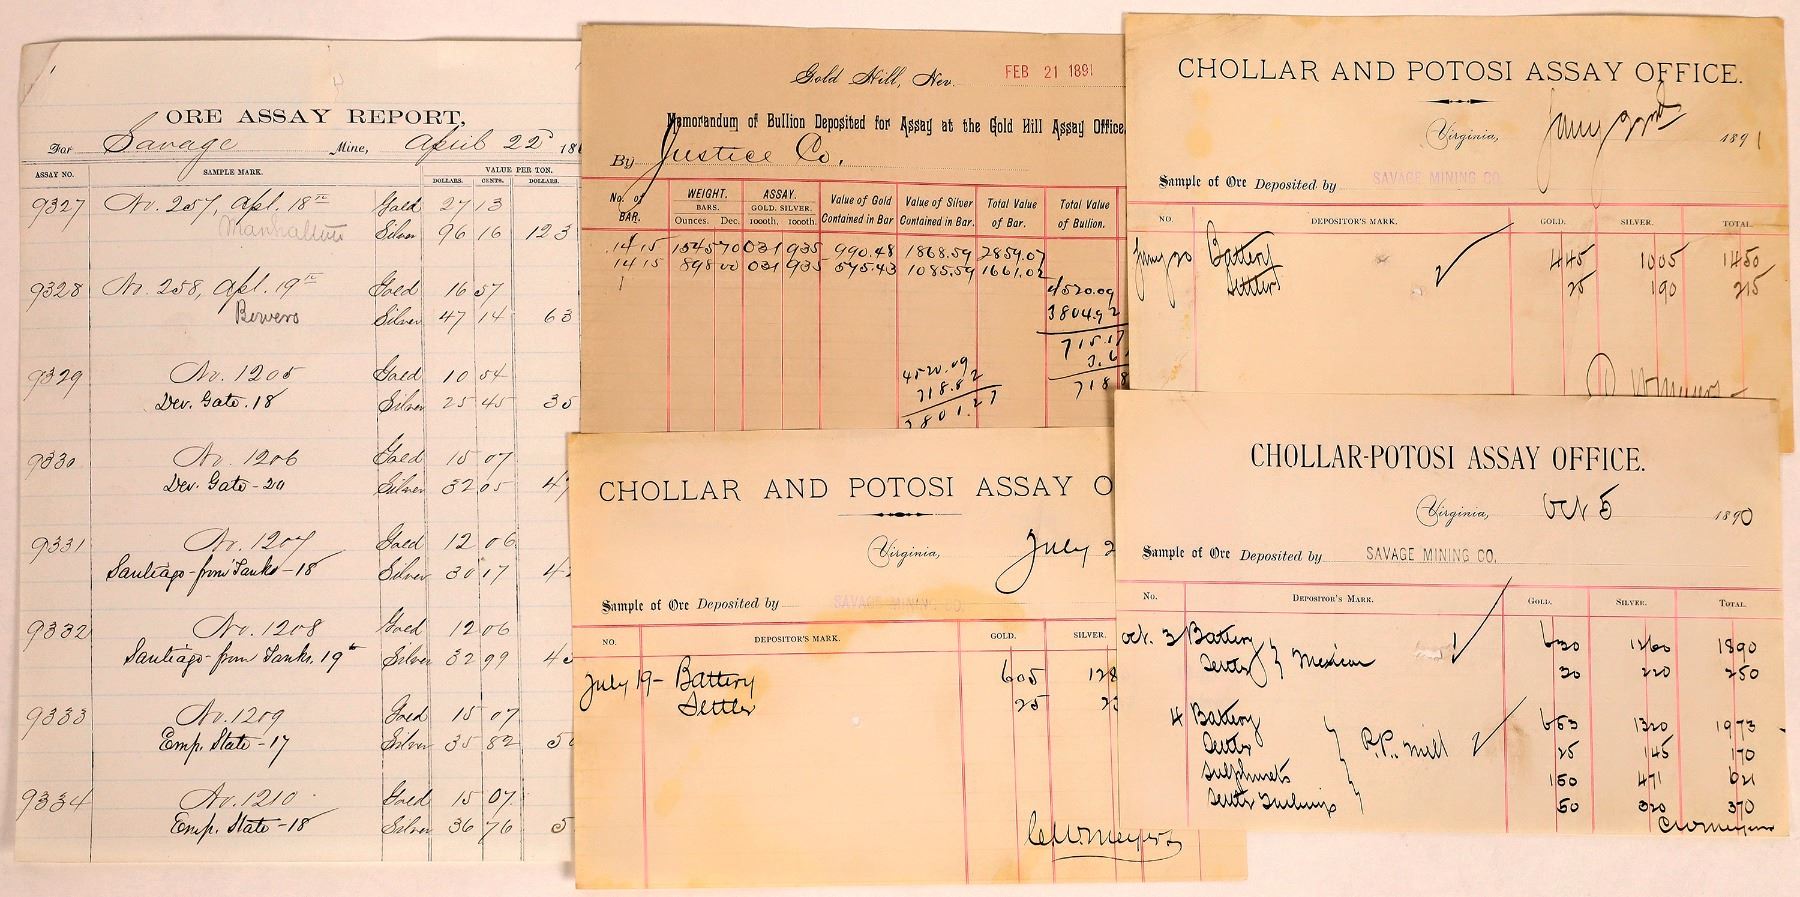 ORE ASSAY REPORT,
For Savage Mine, April 22 18
ASSAY NO. SAMPLE MARK. VALUE PER TON.
DOLLARS. CENTS. DOLLARS.
9327 No. 257, Apl. 18th Gold 27 13
Silver 96 16 123
9328 No. 258, Apl. 19th Gold 16 57
Bowers Silver 47 14 63
9329 No. 1205 Gold 10 54
Dev. Gate. 18 Silver 25 45 35
9330 No. 1206 Gold 15 07
Dev. Gate - 20 Silver 32 05 47
9331 No. 1207 Gold 12 06
Santiago - from Tanks - 18 Silver 30 17 42
9332 No. 1208 Gold 12 06
Santiago - from Tanks. 19th Silver 32 99 45
9333 No. 1209 Gold 15 07
Emp. State - 17 Silver 35 82 50
9334 No. 1210 Gold 15 07
Emp. State - 18 Silver 36 76 5
Gold Hill, Nev. FEB 21 1891
Memorandum of Bullion Deposited for Assay at the Gold Hill Assay Office,
By Justice Co.
No. of BAR. WEIGHT. ASSAY. Value of Gold Contained in Bar Value of Silver Contained in Bar. Total Value of Bar. Total Value of Bullion.
BARS. GOLD. SILVER.
Ounces. Dec. 1000th. 1000th.
14 15 1545 70 031 935 990.48 1868.59 2859.07
14 15 898 00 031 935 575.43 1085.59 1661.02
4520.09
3804.92
715.17
3.6
718.8
4520.09
718.82
3801.27
CHOLLAR AND POTOSI ASSAY OFFICE.
Virginia, Jany 22nd 1891
Sample of Ore Deposited by SAVAGE MINING CO.
NO. DEPOSITOR'S MARK. GOLD. SILVER. TOTAL.
Jany 20 Battery 445 1005 1450
Settler 25 190 215
CHOLLAR AND POTOSI ASSAY O
Virginia, July 2
Sample of Ore Deposited by SAVAGE MINING CO.
NO. DEPOSITOR'S MARK. GOLD. SILVER.
July 19 - Battery 605 128
Settler 25 23
C W Meyers
CHOLLAR-POTOSI ASSAY OFFICE.
Virginia, Oct 5 1890
Sample of Ore Deposited by SAVAGE MINING CO.
No. DEPOSITOR'S MARK. GOLD. SILVER. TOTAL.
Oct. 3 Battery 630 1260 1890
Settler } Mexican 30 220 250
4 Battery 653 1320 1973
Settler } R.P. Mill 25 145 170
Sulphurets 150 471 621
Settler 50 320 370
C W Meyers